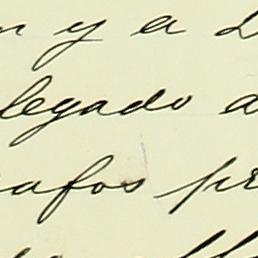 n y a
legado a
afos pr